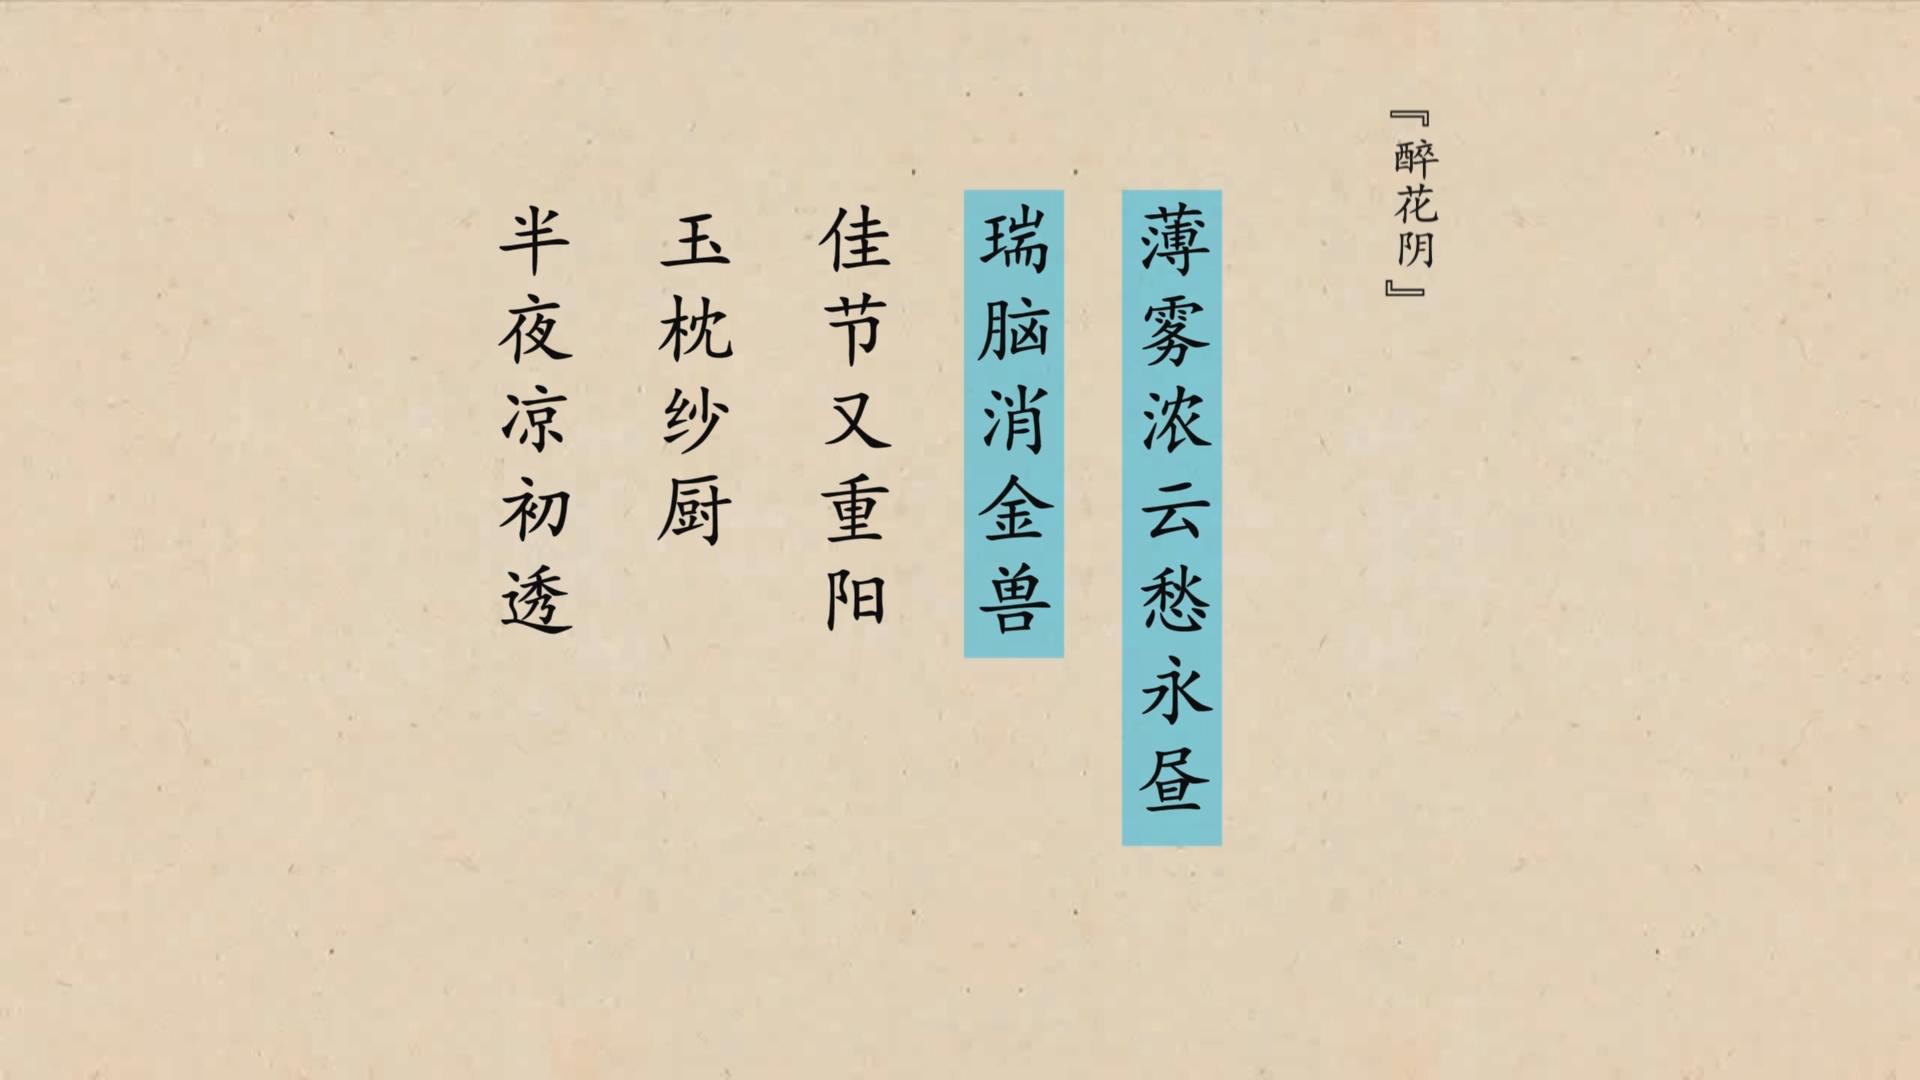 『醉花阴』
薄雾浓云愁永昼
瑞脑消金兽
佳节又重阳
玉枕纱厨
半夜凉初透